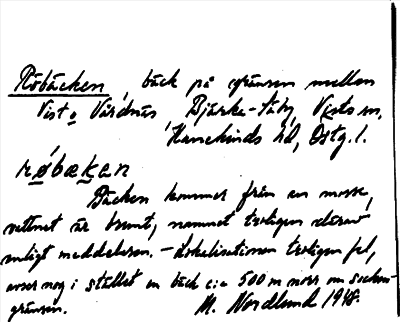 Röbäcken, bäck på gränsen mellan
Vist o Vårdnäs Bjärka-Säby, Vists sn,
Hanekinds hd, Östg. l.
røbækən
Bäcken kommer från en mosse,
vattnet är brunt, namnet troligen därav
enligt meddelaren. – Lokalisationen troligen fel,
avser nog i stället en bäck c:a 500 m norr om socken-
gränsen. M. Nordlund 1948.